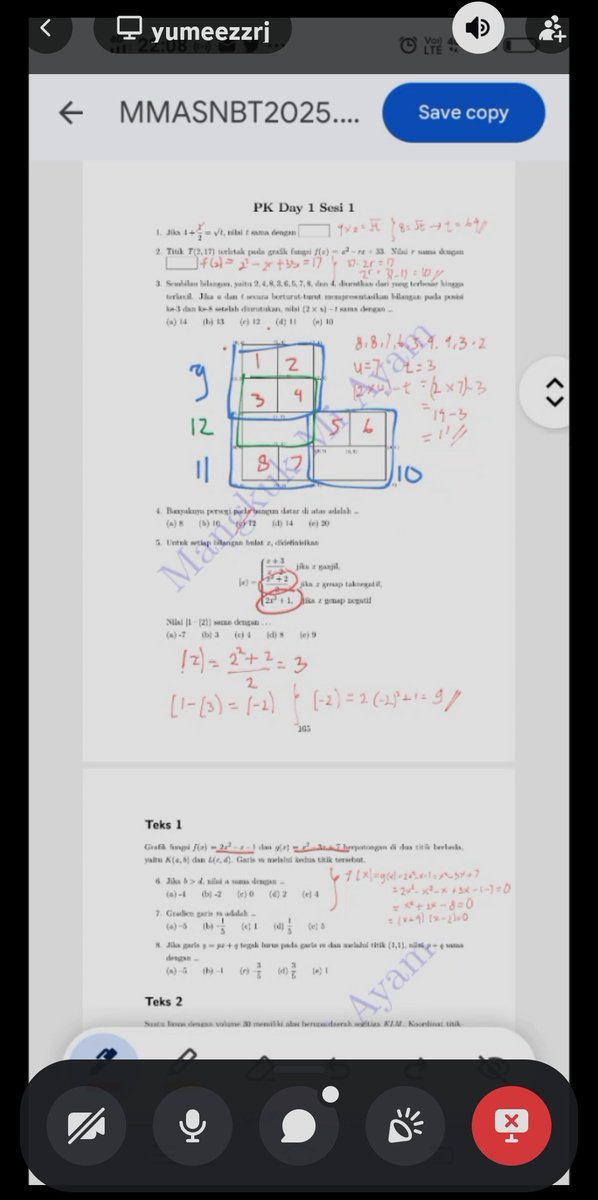 yumeezzrj
22:08
Voi) LTE
MMASNBT2025....
Save copy
PK Day 1 Sesi 1
1. Jika 4 + t/2 = √t, nilai t sama dengan
8 = √t → t = 64
2. Titik T(2,17) terletak pada grafik fungsi f(x) = x² − rx + 33. Nilai r sama dengan
= 17
3. Sembilan bilangan, yaitu 2, 4, 8, 3, 6, 5, 7, 8, dan 4, diurutkan dari yang terbesar hingga
terkecil. Jika u dan t secara berturut-turut mempresentasikan bilangan pada posisi
ke-3 dan ke-8 setelah diurutukan, nilai (2 × u) − t sama dengan ...
(a) 14 (b) 13 (c) 12 (d) 11 (e) 10
8, 8, 7, 6, 5, 4, 4, 3, 2
u = 7 t = 3
(2×u) − t = (2 × 7) − 3
= 14 − 3
= 11
9
1 2
3 4
12
5 6
11
8 7
10
4. Banyaknya persegi pada bangun datar di atas adalah ...
(a) 8 (b) 10 (c) 12 (d) 14 (e) 20
5. Untuk setiap bilangan bulat z, didefinisikan
jika z ganjil,
jika z genap taknegatif,
2z² + 1, jika z genap negatif
Nilai [1 − [2]] sama dengan ...
(a) -7 (b) 3 (c) 4 (d) 8 (e) 9
[2] = 2² + 2 / 2 = 3
[1 − [3] = [−2] [−2] = 2(−2)² + 1 = 9
165
Teks 1
Grafik fungsi f(x) = 2x² − x − 1 dan g(x) = x² − 3x + 7 berpotongan di dua titik berbeda,
yaitu K(a, b) dan L(c, d). Garis m melalui kedua titik tersebut.
f(x) = g(x) = 2x² − x − 1 = x² − 3x + 7
= 2x² − x² − x + 3x − 1 − 7 = 0
= x² + 2x − 8 = 0
= (x+4) (x−2) = 0
6. Jika b > d, nilai a sama dengan ...
(a) -4 (b) -2 (c) 0 (d) 2 (e) 4
7. Gradien garis m adalah ...
(a) -5 (b) -1/5 (c) 1 (d) 1/5 (e) 5
8. Jika garis y = px + q tegak lurus pada garis m dan melalui titik (1,1), nilai p − q sama
dengan ...
(a) -5 (b) -1 (c) -3/5 (d) 3/5 (e) 1
Teks 2
Suatu limas dengan volume 30 memiliki alas berupa daerah segitiga KLM. Koordinat titik-
Mangkuk Mi Ayam
Ayam